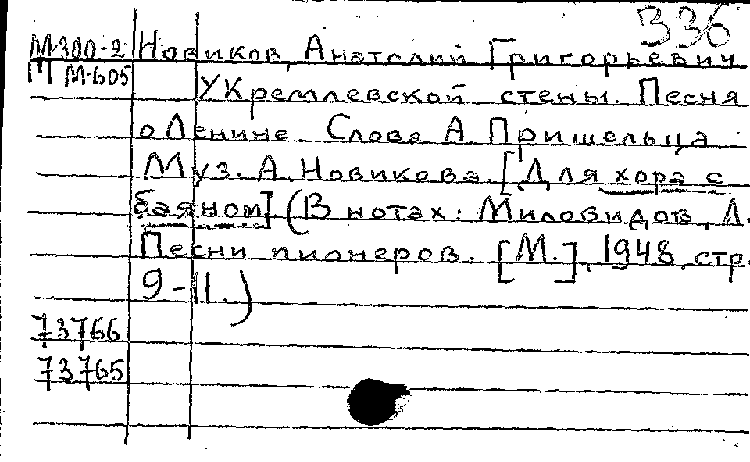 336
М-300-2 Новиков, Анатолий Григорьевич
П М-605 У Кремлевской стены. Песня
о Ленине. Слова А. Пришельца
Муз. А. Новикова. [Для хора с
баяном] (В нотах: Миловидов, Л.
Песни пионеров. [М.], 1948, стр.
9-11.)
73766
73765